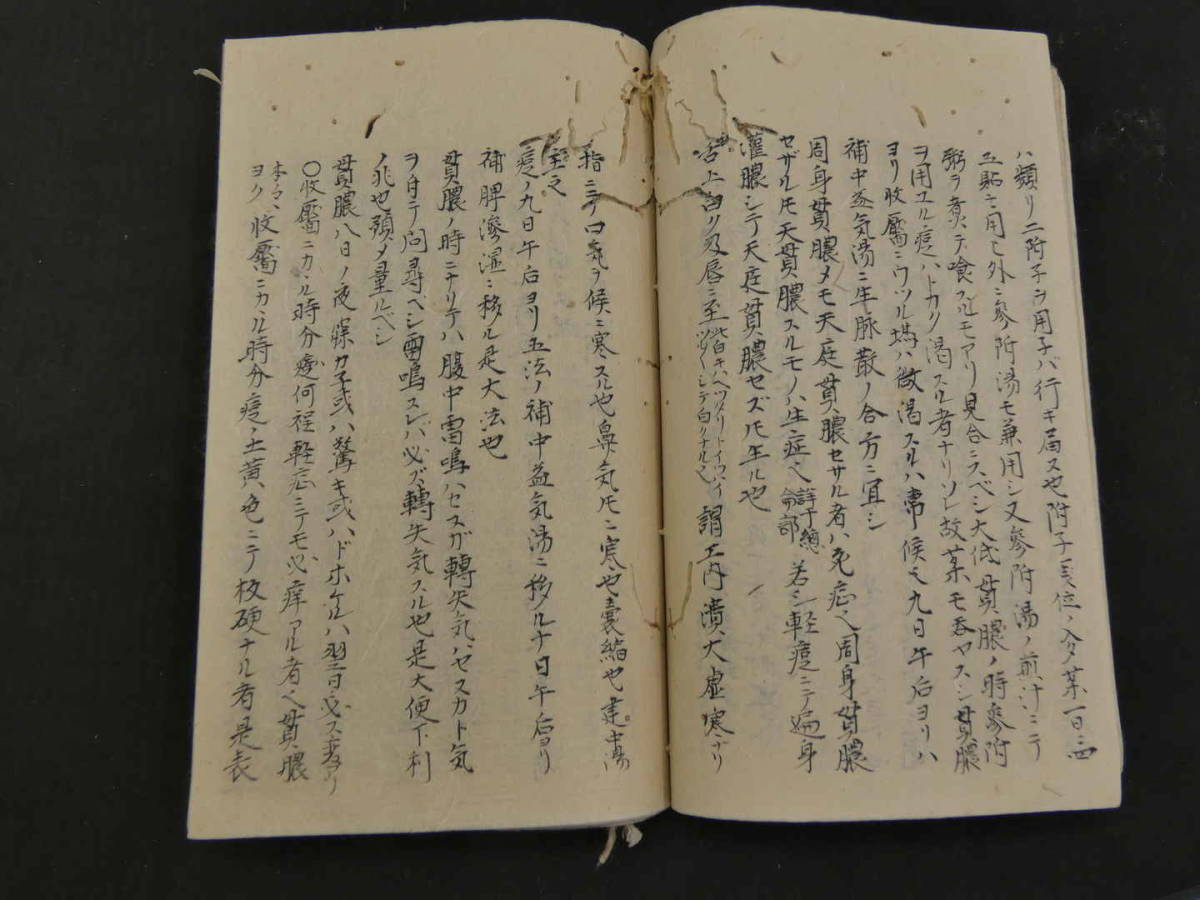 ハ頻リニ附子ヲ用子バ行キ届ヌ也附子一戔位ノ入タ薬一日ニ四
五貼モ用ヒ外ニ參附湯モ兼用シ又參附湯ノ煎汁ニテ
粥ヲ煮テ喰スルヿモアリ見合ニスベシ大低貫膿ノ時參附
ヲ用ユル痘ハトカク渇スル者ナリソレ故薬モ呑ヤスシ貫膿
ヨリ收靨ニウツル塲ハ微渇スルハ常候也九日午后ヨリハ
補中益気湯ニ生脉散ノ合方ニ宜シ
周身貫膿メモ天庭貫膿セサル者ハ死症也周身貫膿
セザルモ天貫膿スルモノハ生症也 詳于總論部 若シ軽痘ニテ遍身
灌膿シテ天庭貫膿セズ𪜈生ル也
舌上白ク及唇ニ至 此白キハベツタリト シテ白クナル也 謂工内潰大虚寒ナリ
指ニテ口気ヲ候ニ寒スル也鼻気𪜈ニ寒也嚢縮也建中湯
主之
痘ノ九日午后ヨリ五法ノ補中益気湯ニ移ル十日午后ヨリ
補脾滲湿ニ移ル是大法也
貫膿ノ時ニナリテハ腹中雷鳴ハセスガ轉失気ハセスカト気
ヲ付テ問尋ベシ雷鳴スレバ必ズ轉失気スル也是大便下利
ノ兆也預メ量ルベシ
貫膿八日ノ夜寐カ子或ハ驚キ或ハドホケルハ翌日必ス変アリ
〇收靨ニカヽル時分痘何程軽症ニテモ必痒アル者也貫膿
本ママヨク收靨ニカヽル時分痘ノ土黄色ニテ板硬ナル者是表